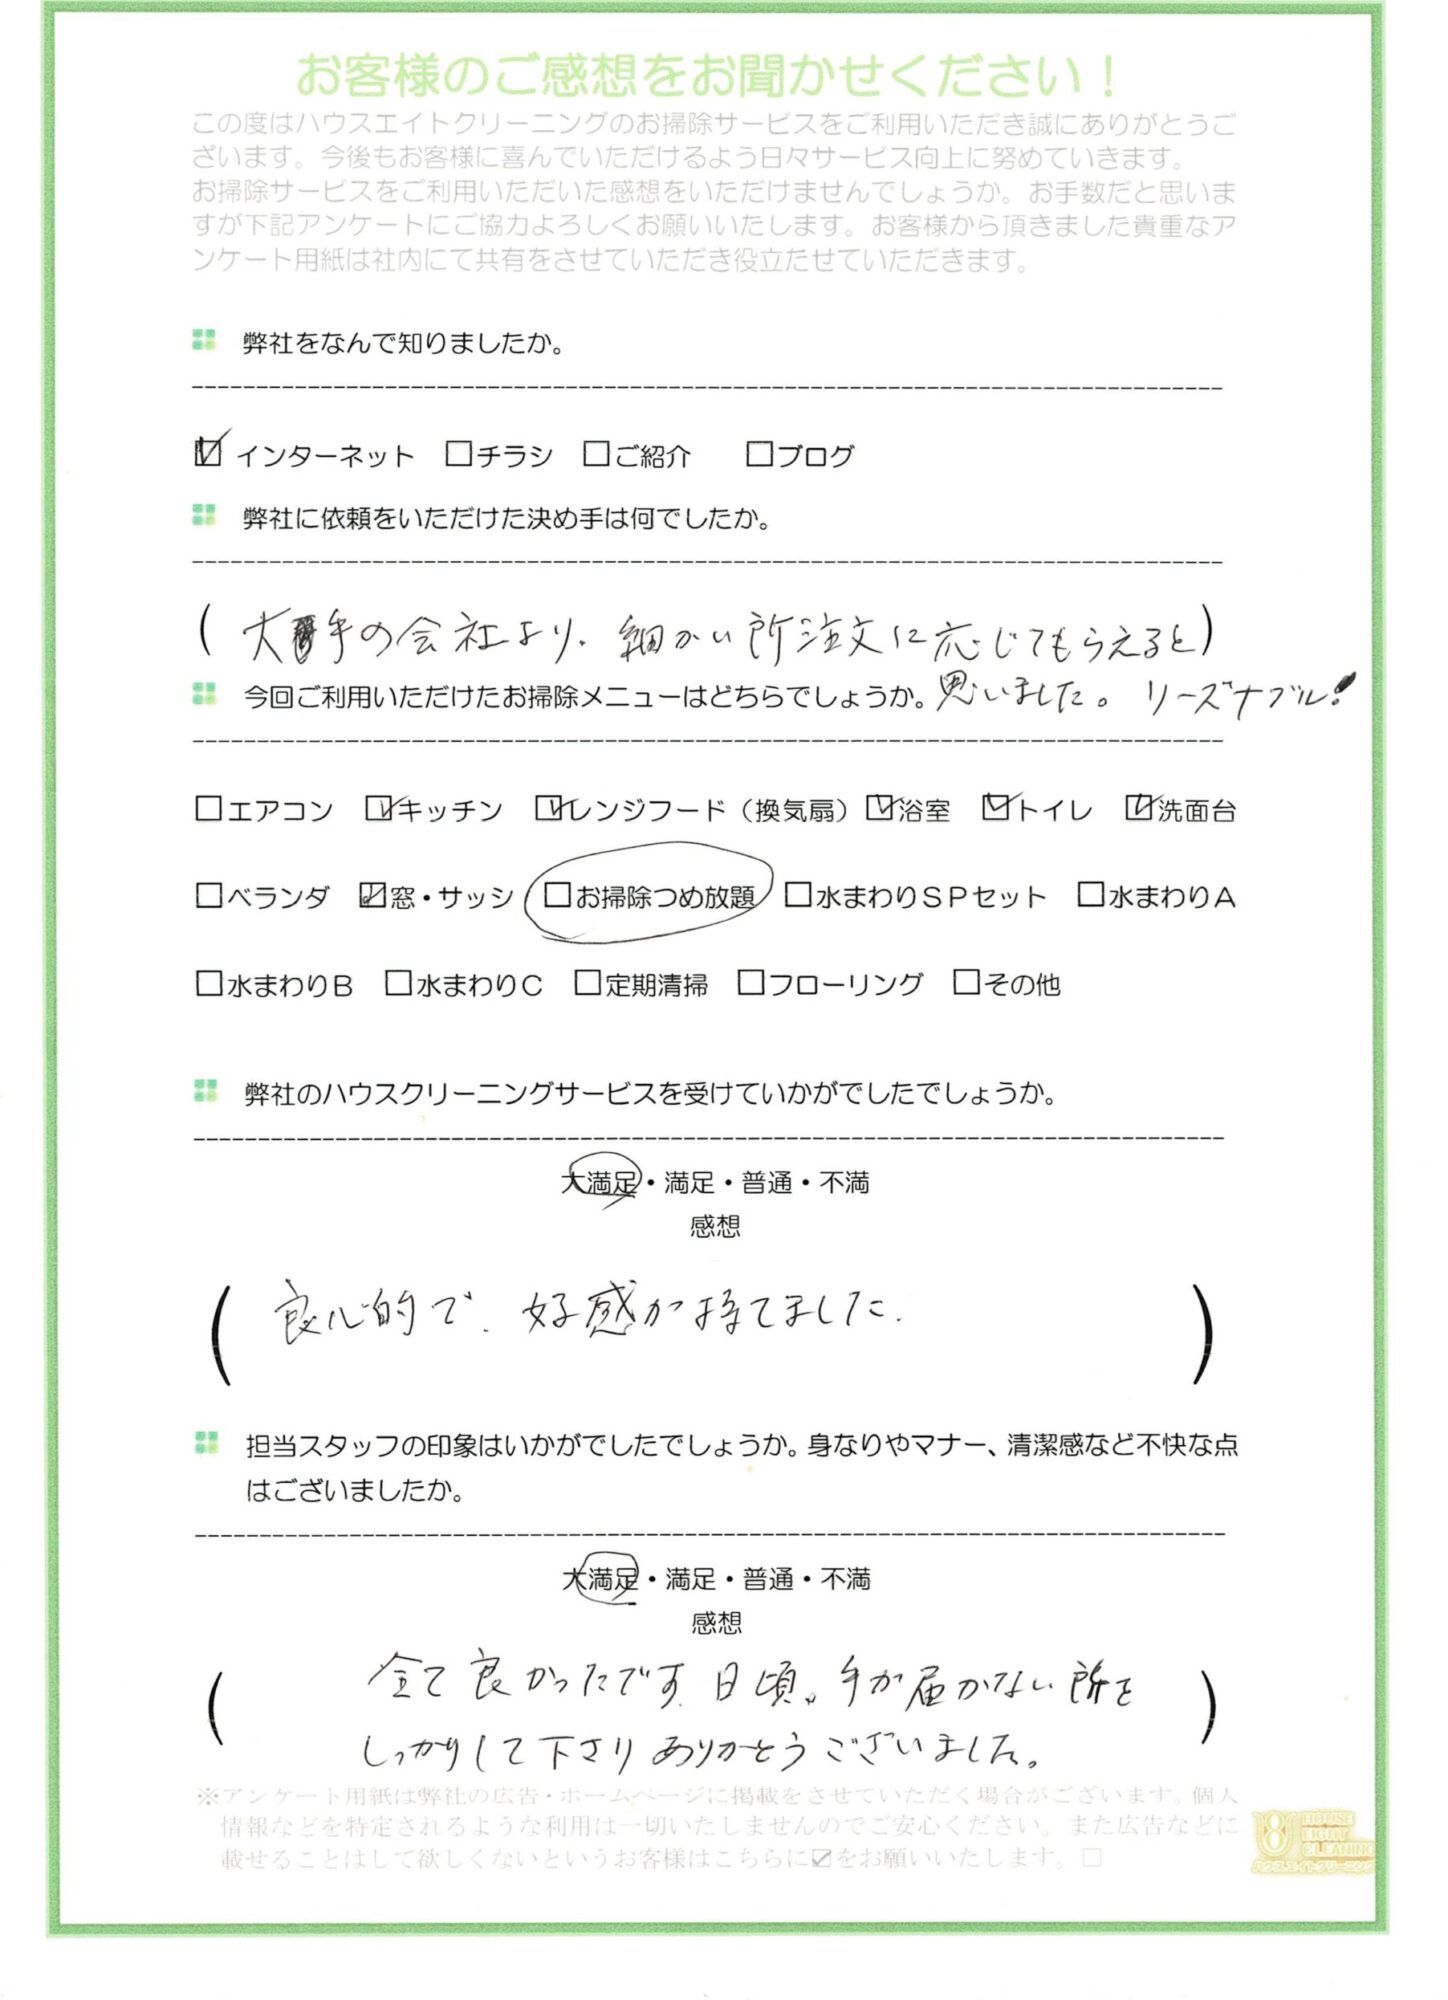 お客様のご感想をお聞かせください！
この度はハウスエイトクリーニングのお掃除サービスをご利用いただき誠にありがとうご
ざいます。今後もお客様に喜んでいただけるよう日々サービス向上に努めていきます。
お掃除サービスをご利用いただいた感想をいただけませんでしょうか。お手数だと思いま
すが下記アンケートにご協力よろしくお願いいたします。お客様から頂きました貴重なア
ンケート用紙は社内にて共有をさせていただき役立たせていただきます。
弊社をなんで知りましたか。
☑インターネット □チラシ □ご紹介 □ブログ
弊社に依頼をいただけた決め手は何でしたか。
(大手の会社より、細かい所注文に応じてもらえると)
今回ご利用いただけたお掃除メニューはどちらでしょうか。思いました。リーズナブル！
□エアコン ☑キッチン ☑レンジフード（換気扇）☑浴室 ☑トイレ ☑洗面台
□ベランダ ☑窓・サッシ □お掃除つめ放題 □水まわりＳＰセット □水まわりＡ
□水まわりＢ □水まわりＣ □定期清掃 □フローリング □その他
弊社のハウスクリーニングサービスを受けていかがでしたでしょうか。
大満足・満足・普通・不満
感想
(良心的で、好感が持てました。)
担当スタッフの印象はいかがでしたでしょうか。身なりやマナー、清潔感など不快な点
はございましたか。
大満足・満足・普通・不満
感想
(全て良かったです。日頃。手が届かない所を
しっかりして下さりありがとうございました。)
※アンケート用紙は弊社の広告・ホームページに掲載をさせていただく場合がございます。個人
情報などを特定されるような利用は一切いたしませんのでご安心ください。また広告などに
載せることはして欲しくないというお客様はこちらに☑をお願いいたします。□
8 HOUSE
EIGHT
CLEANING
ハウスエイトクリーニング